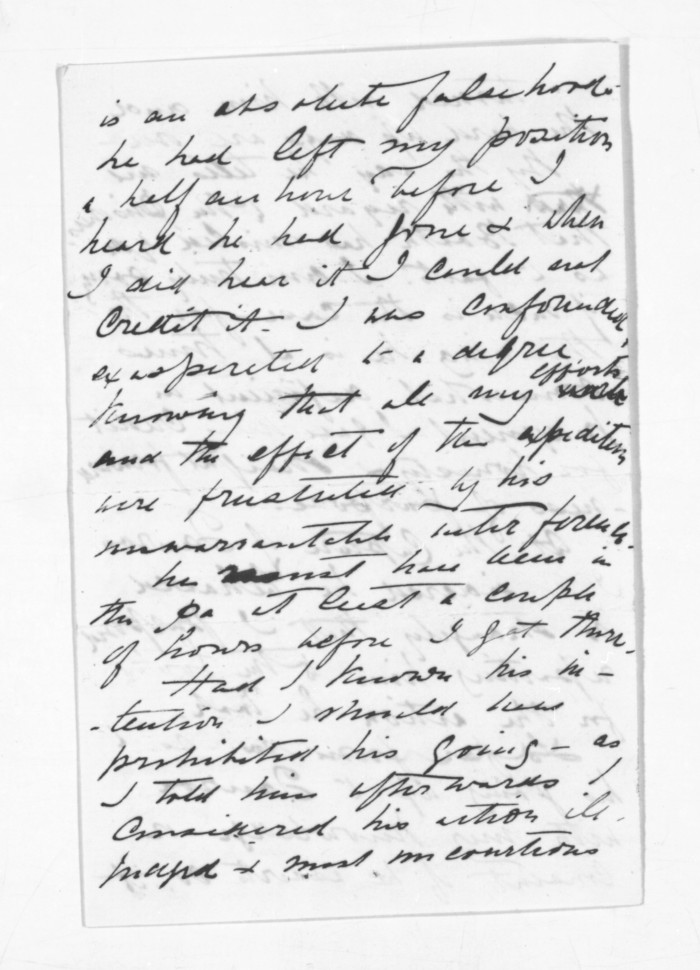 is an absolute falsehood -
he had left my position
a half an hour before I
heard he had gone & when
I did hear it I could not
Credit it - I was confounded,
exasperated to a degree
efforts
knowing that all my
and the effect of the expedition
were frustrated by his
unwarrantable interference -
he must have been in
the pa at least a couple
of hours before I got there -
Had I known his in-
-tention I should have
prohibited his going - as
I told him afterwards I
Considered his action ill-
judged & most uncourteous